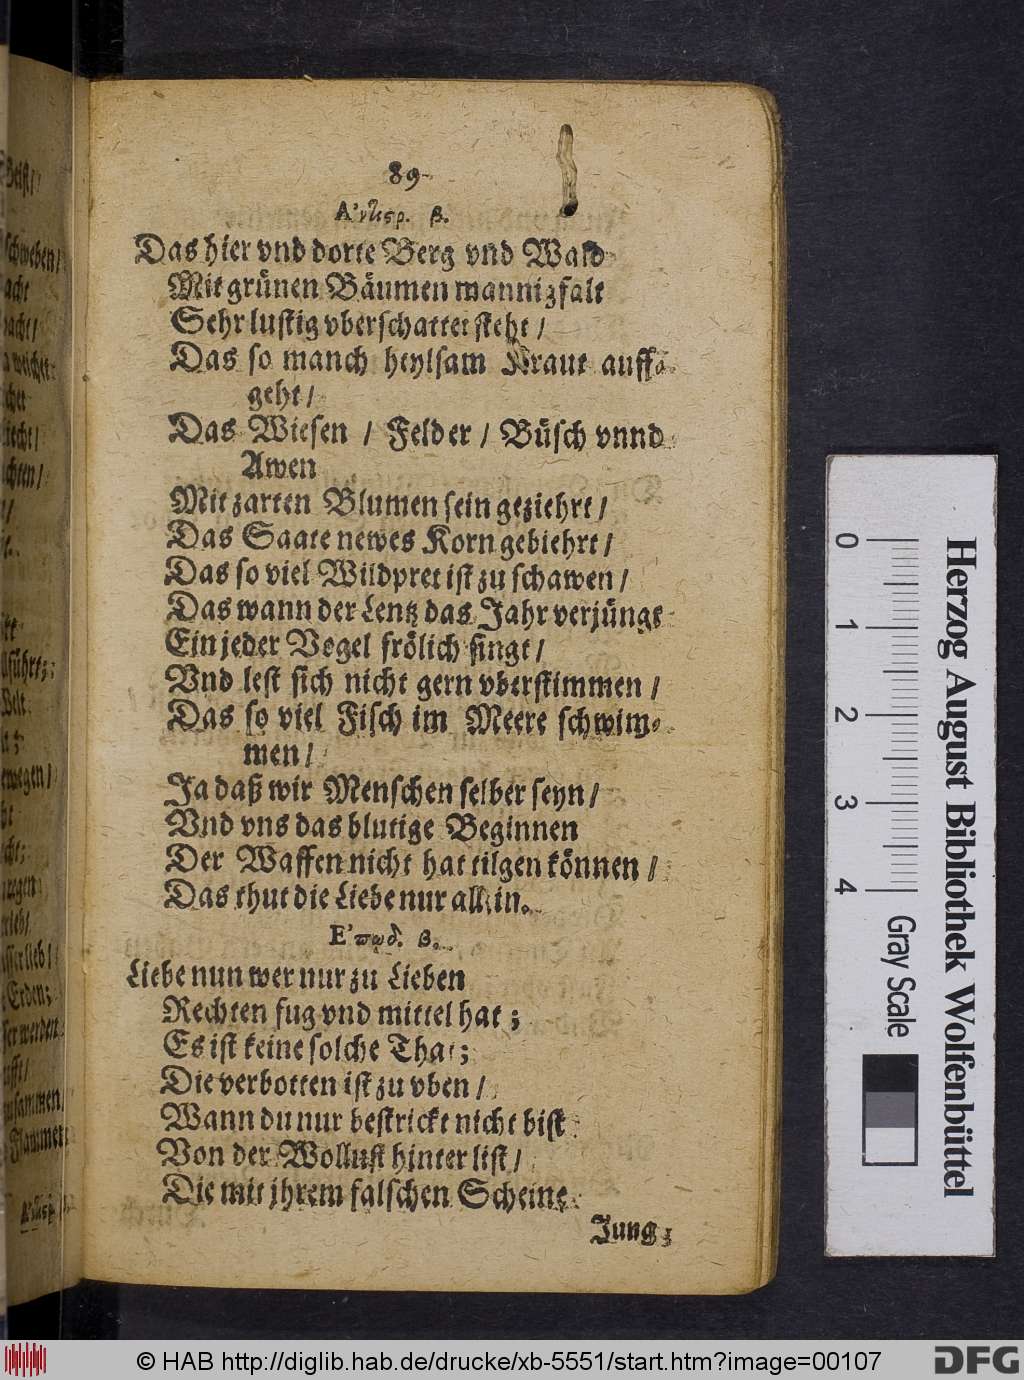 89
Ἀντιστρ. β.
Das hier vnd dorte Berg vnd Wald
Mit grünen Bäumen mannigfalt
Sehr lustig vberschattet steht /
Das so manch heylsam Kraut auff
geht /
Das Wiesen / Felder / Büsch vnnd
Awen
Mit zarten Blumen sein geziehrt /
Das Saate newes Korn gebiehrt /
Das so viel Wildpret ist zu schawen /
Das wann der Lentz das Jahr verjüngt
Ein jeder Vogel frölich singt /
Vnd lest sich nicht gern vberstimmen /
Das so viel Fisch im Meere schwim-
men /
Ja daß wir Menschen selber seyn /
Vnd vns das blutige Beginnen
Der Waffen nicht hat tilgen können /
Das thut die Liebe nur allein.
Ἐπῳδ. β.
Liebe nun wer nur zu Lieben
Rechten fug vnd mittel hat ;
Es ist keine solche That ;
Die verbotten ist zu vben /
Wann du nur bestrickt nicht bist
Von der Wollust hinter list /
Die mit jhrem falschen Scheine
Jung-
Geist /
schweben /
führt ;
Erden ;
Flammen
0
1
2
3
4
Gray Scale
Herzog August Bibliothek Wolfenbüttel
© HAB http://diglib.hab.de/drucke/xb-5551/start.htm?image=00107
DFG